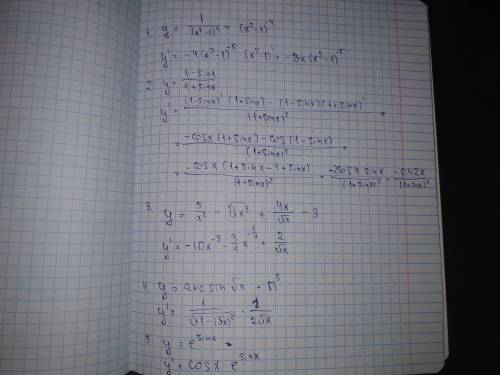 1. y = 1/(x²-1)⁴ = (x²-1)⁻⁴
y' = -4(x²-1)⁻⁵ · (x²-1)' = -8x(x²-1)⁻⁵
2. y = (1-sinx)/(1+sinx)
y' = ((1-sinx)'(1+sinx) - (1-sinx)(1+sinx)')/(1+sinx)² =
= (-cosx(1+sinx) - cos(1-sinx))/(1+sinx)² =
= -cosx(1+sinx-1+sinx)/(1+sinx)² = -2cosx sinx/(1+sinx)² = -sin2x/(1+sinx)²
3. y = 5/x² - ⁴√x³ + 4x/√x - 3
y' = -10x⁻³ - 3/4 x^(-1/4) + 2/√x
4. y = arcsin√x + π³
y' = 1/√(1-(√x)²) · 1/(2√x)
5. y = e^(sinx)
y' = cosx · e^(sinx)